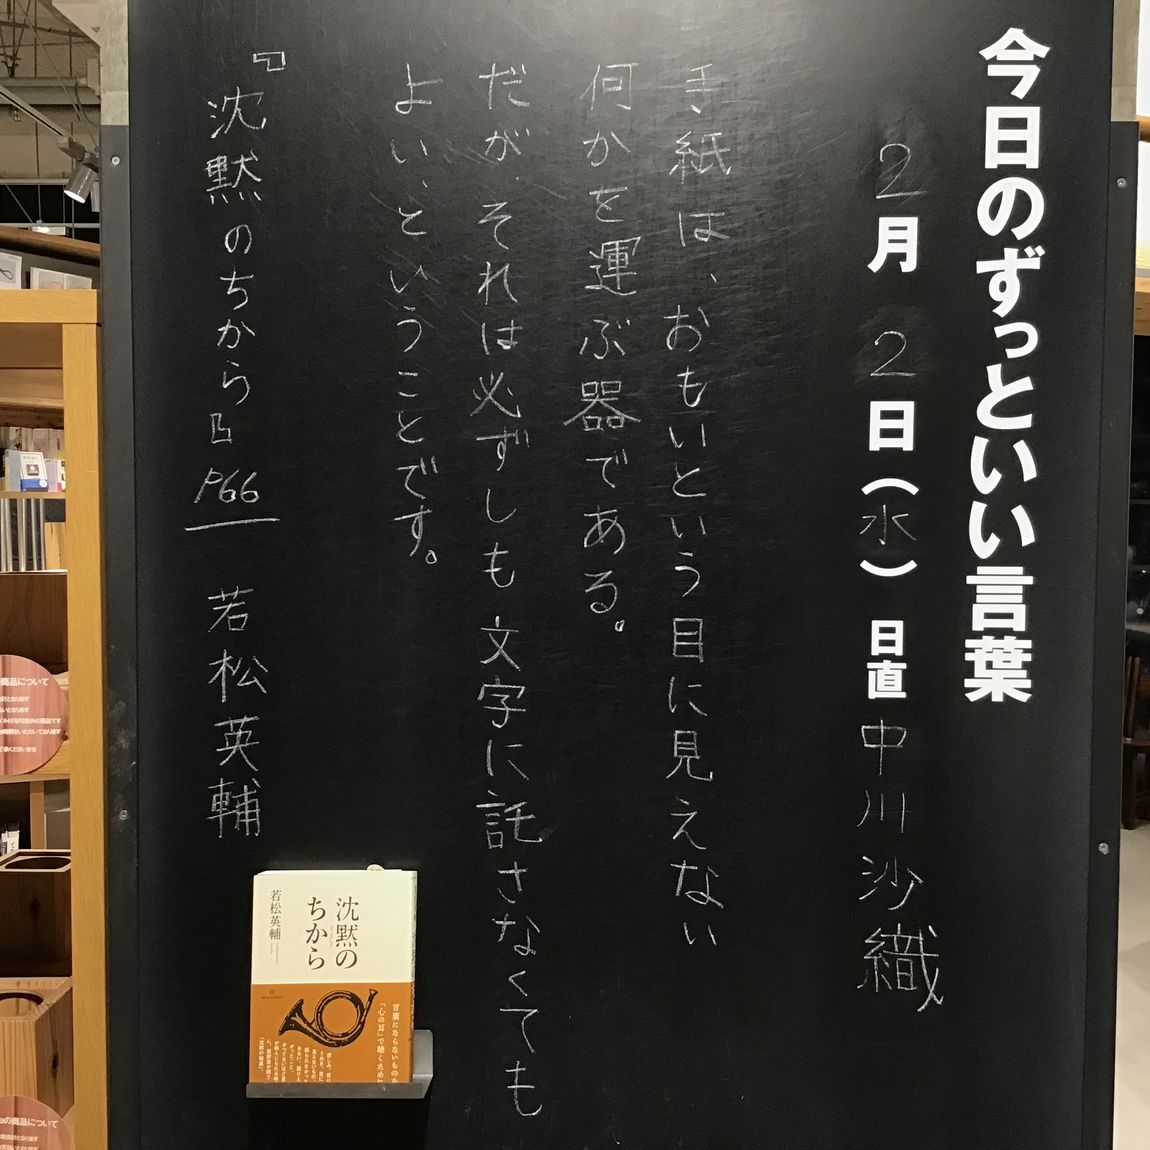 今日のずっといい言葉
2月2日（水）日直 中川沙織
手紙は、おもいという目に見えない
何かを運ぶ器である。
だが、それは必ずしも文字に託さなくても
よい、ということです。
『沈黙のちから』P66 若松英輔
沈黙の
ちから
若松英輔
言葉にならないものを
「心の耳」で聴くために
の商品について
aの商品について